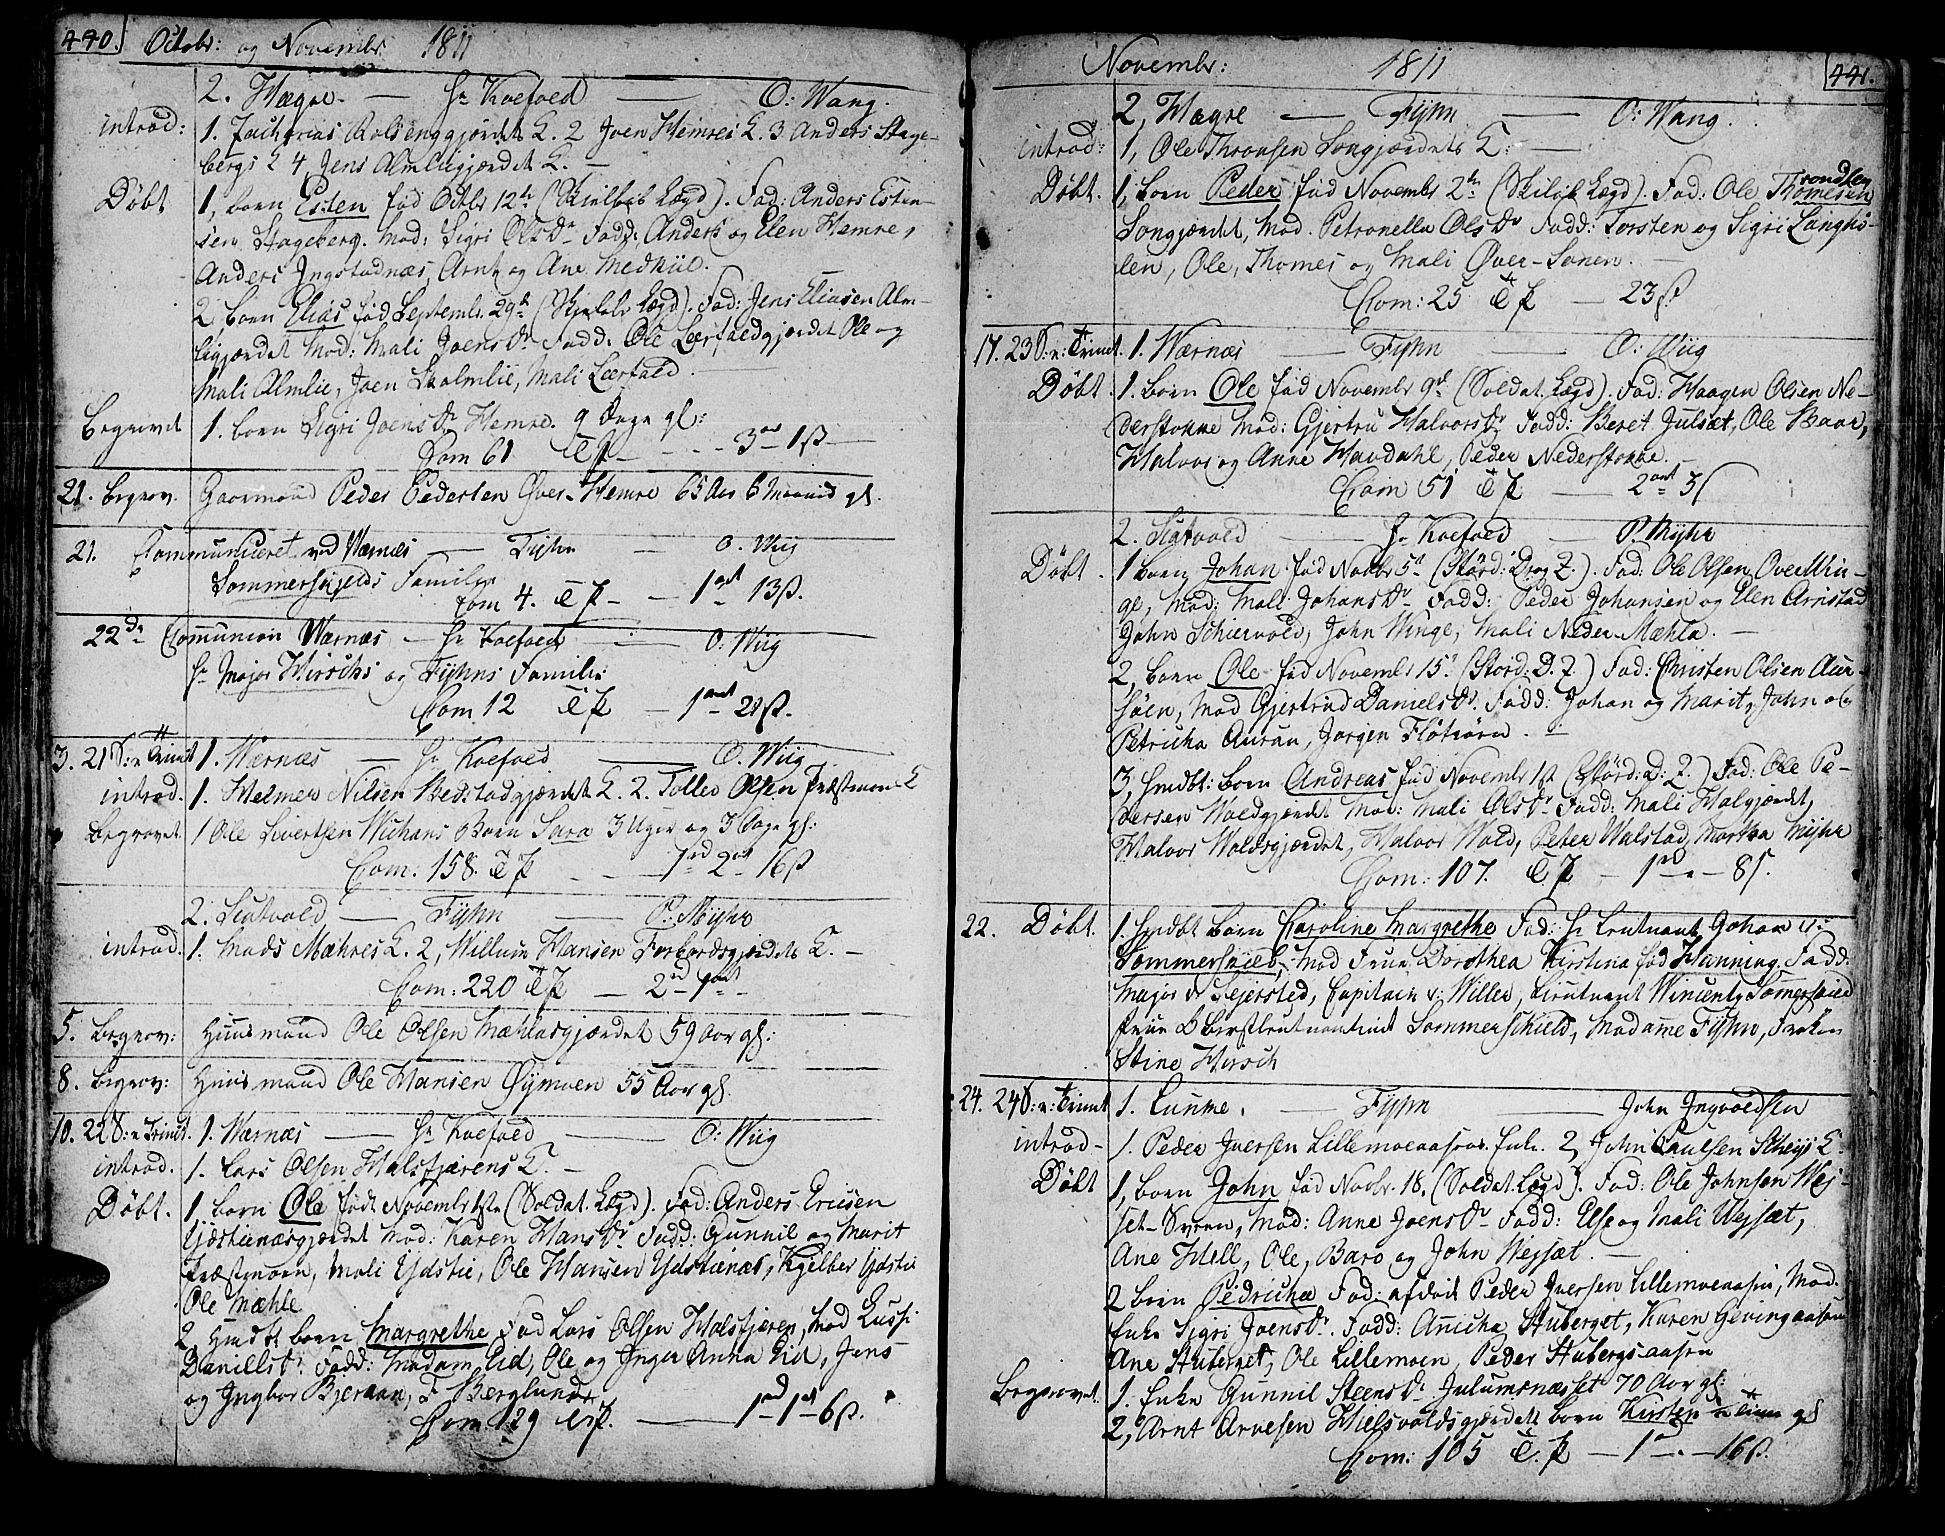 440. Octobr: og Novembr 1811
2. Hægre — Hr Koefoed — O: Wang.
introd: 1. Zacharias Rolsenggjerdet K. 2 Joen Hemres K. 3 Anders Stage-
bergs K 4 Jens Almliegjærdet K. —
Døbt 1, barn Esten fød Octbr 12te (Lægd). Fad: Anders Esten-
sen Stageberg. Mod: Sigri Olsdr Fadd: Anders og Elen Hemre,
Anders Ingstadnæs, Arnt og Ane Medhue.
2 barn Elias fød Septembr. 29de (Lægd). Fad: Jens Eliasen Alm-
ligjærdet Mod: Mali Joensdr Fadd: Ole Leerfaldgjerdet Ole og
Mali Almlie, Joen Skolmlie, Mali Leerfald.
Begravet 1. barn Sigri Joensdr Hemre. 9 Dage gl:
Com 61 T P — 3 ort 1 s
21. Begrav. Gaarmand Peder Pedersen Øver-Hemre 65 Aar 6 Maaned gl.
21. Communiceret ved Wærnes — Fyhn — O. Wiig
Sommerschields Familie
Com 4. T P — 1 ort 13 s.
22de Communion Wærnæs — Hr Koefoed — O: Wiig
Hr Major Hirschs og Fyhns Familie
Com 12 T P — 1 ort 21 s.
3. 21 S: e Trinit 1. Wærnæs — Hr Koefoed — O. Wiig
introd. 1. Helmer Nilsen Bedstadgjerdet K. 2. Tollev Olsen Præstmoens K
Begravet. 1 Ole Sivertsen Wichans Barn Sara 3 Uger og 3 Dage gl:
Com. 158. T P — 1 rd 2 ort 16 s
2. Scatvold — Fyhn — P. Myhr
introd. 1. Mads Mæhres K. 2, Willum Hansen Forbordsgjerdets K. —
Com: 220 T P — 2 rd 1 ort
5. Begrav: Huusmand Ole Olsen Mæhlasgjærdet 59 Aar gl:
8. Begrav: Huusmand Ole Hansen Øymoen 55 Aar gl.
10. 22 S: e Trinit. 1. Wærnæs — Hr Koefoed — O: Wiig
introd. 1. Lars Olsen Halsfjærens K. —
Døbt. 1 barn Ole født Novembr 1ste (Soldat. Lægd). Fad: Anders Ericsen
Ydstienæsgjærdet Mod: Karen Hansdr Fadd: Gunnil og Marit
Præstmoen, Mali Ydstie, Ole Hansen Ydstienæs, Kjelber Ydstie
Ole Mæhle
2 Hmdbt barn Margrethe Fad Lars Olsen Halsfjæren, Mod Lussi
Danielsdr. Fadd: Madam Eid, Ole og Inger Anna Eid, Jens
og Ingbor Bjeraan, F Berglund.
Com. 129 T P. — 1 rd 1 ort 6 s.
Novembr: 1811 441.
2, Hægre — Fyhn — O: Wang.
introd: 1, Ole Thronsen Songjærdets K: —
Døbt. 1, barn Peder fød Novembr 2de (Skiløb Lægd). Fad: Ole Thomesen Trondsen
Songjærdet, Mod. Petronella Olsdr Fadd: Torsten og Sigri Langhs-
len, Ole, Thomes og Mali Øver-Sonen. —
Com: 25 T P — 23 s
17. 23 S: e: Trinit. 1. Wærnæs — Fyhn — O: Wiig
Døbt. 1. barn Ole fød Novembr 9de (Soldat. Lægd). Fad: Haagen Olsen Ne-
derstokke Mod: Gjertru Halvorsdr Fadd: Beret Julsæt, Ole Baar,
Halvor og Anne Havdahl, Peder Nederstokke.
Com 51 T P — 2 ort 3 s
2. Scatvold — Hr Koefoed — P. Myhr
Døbt. 1 barn Johan fød Novbr 5te (Størd: Drag Z.). Fad: Ole Olsen Over Win-
ge, Mod: Mali Johansdr Fadd: Peder Johansen og Elen Arnstad
John Schiervold, John Winge, Mali Neder-Mæhla. —
2, barn Ole fød Novembr 15de (Stord: D. Z.) Fad: Christen Olsen Aur-
søen, Mod Gjertrud Danielsdr. Fadd: Johan og Marit, John og
Petricha Auran, Jørgen Fløtiørn. —
3, Hmdbt: Barn Andreas fød Novembr 1st (Størd: D: Z.) Fad: Ole Pe-
dersen Woldgjerdet Mod: Mali Olsdr Fadd: Mali Halgjerdet,
Halvor Woldsgjærdet, Halvor Wold, Peter Walstad, Martha Myhr
Com: 107. T P — 1 rd — 8 s.
22. Døbt. 1. Hmdbt barn Karoline Margrethe Fad: Hr Leutnant Johan v:
Sommerschield, Mod Frue Dorothea Kirstina fød Hanning. Fadd:
Major v Sejersted, Capitain v: Wille, Lieutnant Wincentz Somerschield
Frue Oberstleutnantinde Sommerschield, Madame Fyhn, Frøken
Stine Hirsch
24. 24 S: e: Trinit 1. Lunke. — Fyhn — John Ingvoldsen
introd- 1. Peder Iversen Lillemoeaasens Enke. 2, John Paulsen Scheys K.
Døbt 1, barn John fød Novbr. 18. (Soldat. Lægd). Fad: Ole Johnsen Wej-
set-Sveen, Mod: Anne Joensdr Fadd: Else og Mali Wejsæt,
Ane Hell, Ole, Baro og John Wejsæt. —
2 barn Pedricha Fad: afdøde Peder Iversen Lillemoeaasen, Mod.
Enke Sigri Joensdr. Fadd: Anicha Stuberget, Karen Gevingaasen
Ane Stuberget, Ole Lillemoen, Peder Stubergsaasen
Begravet. 1. Enke Gunnil Steensdr Julumsnæsset 70 Aar gl:
2, Arnt Arnesen Hielsvoldsgjerdets barn Kirsten gl
Com: 105 T. P — 1 — 16 s.